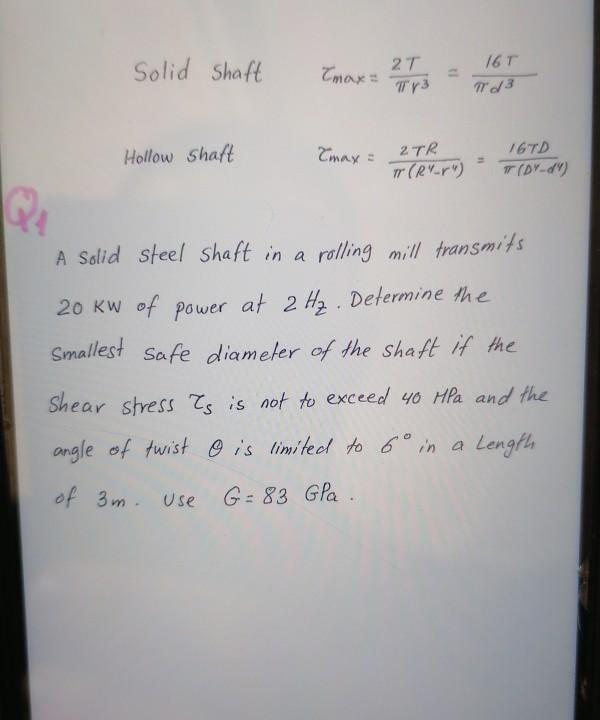 Solid Shaft τmax = 2T/πr³ = 16T/πd³
Hollow Shaft τmax = 2TR/π(R⁴-r⁴) = 16TD/π(D⁴-d⁴)
Q1
A Solid Steel Shaft in a rolling mill transmits
20 KW of power at 2 Hz. Determine the
Smallest safe diameter of the shaft if the
Shear stress τs is not to exceed 40 MPa and the
angle of twist θ is limited to 6° in a Length
of 3m. Use G = 83 GPa.